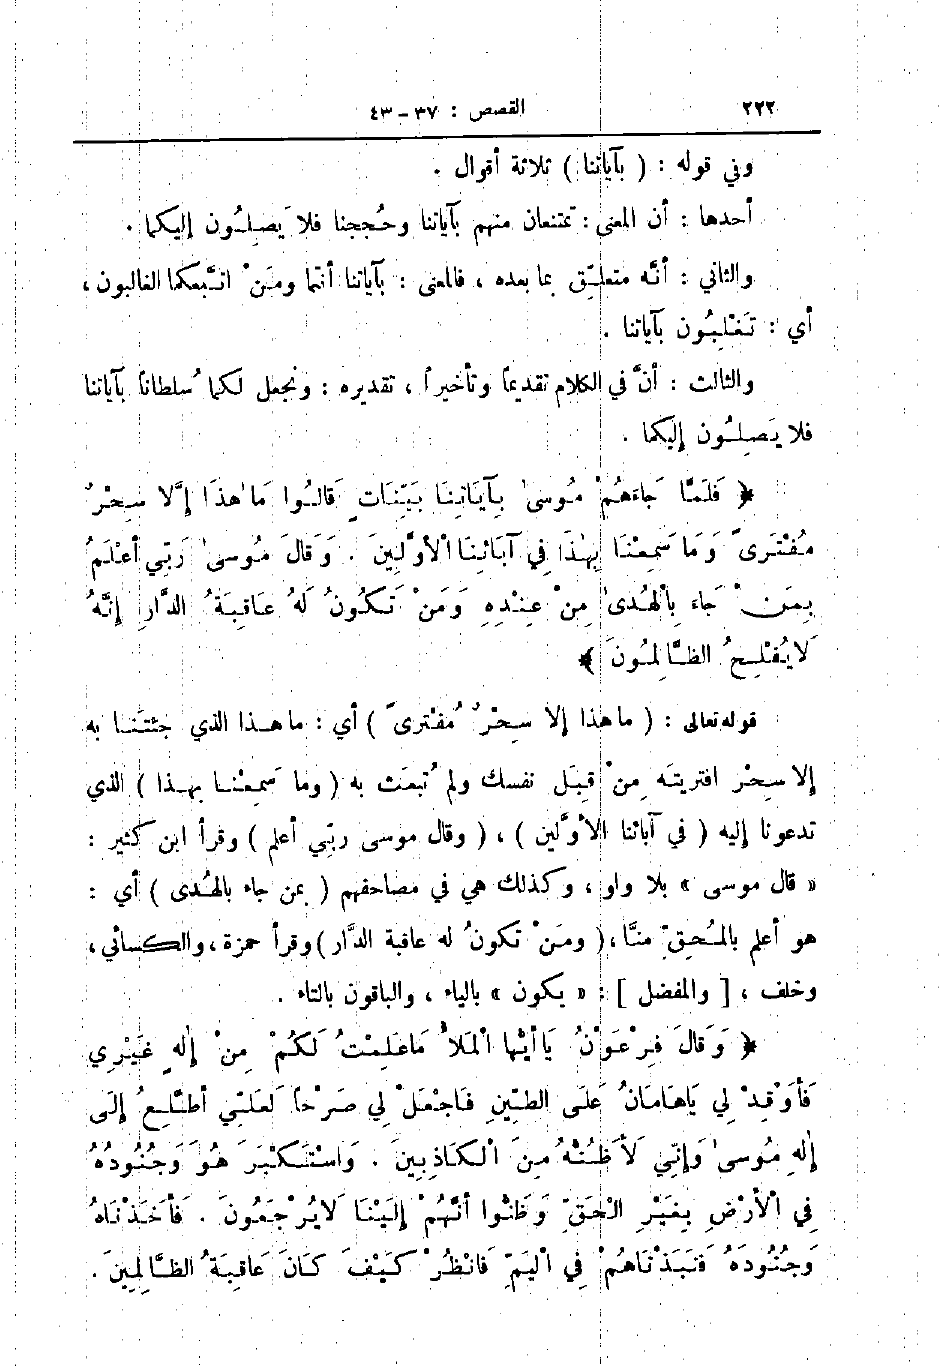 ٢٢٢ القصص : ٣٧ – ٤٣
وفي قوله : ( بآياتنا ) ثلاثة أقوال .
أحدها : أن المعنى : تمتنعان منهم بآياتنا وحُججنا فلا يَصِلُون إليكما .
والثاني : أنَّه متعلِّق بما بعده ، فالمعنى : بآياتنا أنتما ومَنْ اتَّبعكما الغالبون ،
أي : تَغْلِبُون بآياتنا .
والثالث : أنَّ في الكلام تقديماً وتأخيراً ، تقديره : ونجعل لكما سُلطاناً بآياتنا
فلا يَصِلُون إليكما .
﴿ فَلَمَّا جَاءَهُمْ مُوسىٰ بِآيَاتِنَا بَيِّنَاتٍ قَالُوا مَا هٰذَا إِلَّا سِحْرٌ
مُفْتَرىً وَمَا سَمِعْنَا بِهٰذَا فِي آبَائِنَا الْأَوَّلِينَ . وَقَالَ مُوسىٰ رَبِّي أَعْلَمُ
بِمَنْ جَاءَ بِالْهُدىٰ مِنْ عِنْدِهِ وَمَنْ تَكُونُ لَهُ عَاقِبَةُ الدَّارِ إِنَّهُ
لَا يُفْلِحُ الظَّالِمُونَ ﴾
قوله تعالى : ( ما هذا إلا سِحْرٌ مُفْترىً ) أي : ما هـذا الذي جئتَنـا به
إلا سِحْر افتريتَه مِنْ قِبَل نفسك ولم تُبعَث به ( وما سَمِعْنـا بهـذا ) الذي
تدعونا إليه ( في آبائنا الأوَّلين ) ، ( وقال موسى ربِّي أعلم ) وقرأ ابن كثير :
« قال موسى » بلا واو ، وكذلك هي في مصاحفهم ( بمن جاء بالهُدى ) أي :
هو أعلم بالمُحِقِّ منَّا ، ( ومَنْ تكونُ له عاقبة الدَّار ) وقرأ حمزة ، والكسائي ،
وخلف ، [ والمفضل ] : « يكون » بالياء ، والباقون بالتاء .
﴿ وَقَالَ فِرْعَوْنُ يَا أَيُّهَا الْمَلَأُ مَا عَلِمْتُ لَكُمْ مِنْ إِلٰهٍ غَيْرِي
فَأَوْقِدْ لِي يَا هَامَانُ عَلَى الطِّينِ فَاجْعَلْ لِي صَرْحاً لَعَلِّي أَطَّلِعُ إِلَى
إِلٰهِ مُوسىٰ وَإِنِّي لَأَظُنُّهُ مِنَ الْكَاذِبِينَ . وَاسْتَكْبَرَ هُوَ وَجُنُودُهُ
فِي الْأَرْضِ بِغَيْرِ الْحَقِّ وَظَنُّوا أَنَّهُمْ إِلَيْنَا لَا يُرْجَعُونَ . فَأَخَذْنَاهُ
وَجُنُودَهُ فَنَبَذْنَاهُمْ فِي الْيَمِّ فَانْظُرْ كَيْفَ كَانَ عَاقِبَةُ الظَّالِمِينَ .